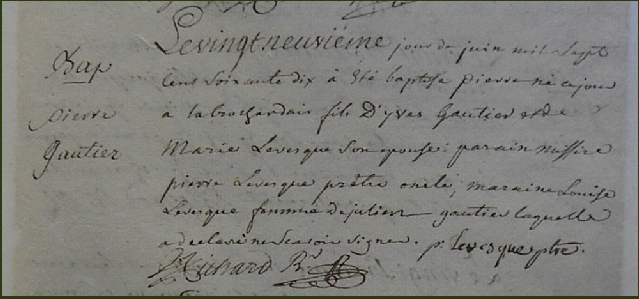 Bap
pierre
Gautier
Le vingt neuviéme jour de juin mil sept
cens soixante dix à été baptisé pierre né ce jour
à la brochardais fils D'yves Gautier et de
Marie Levesque son epouse: parain missire
pierre Levesque prêtre oncle, maraine Louise
Levesque femme de julien gautier laquelle
a declaré ne scavoir signer. p. Levesque ptre.
Richard Rr